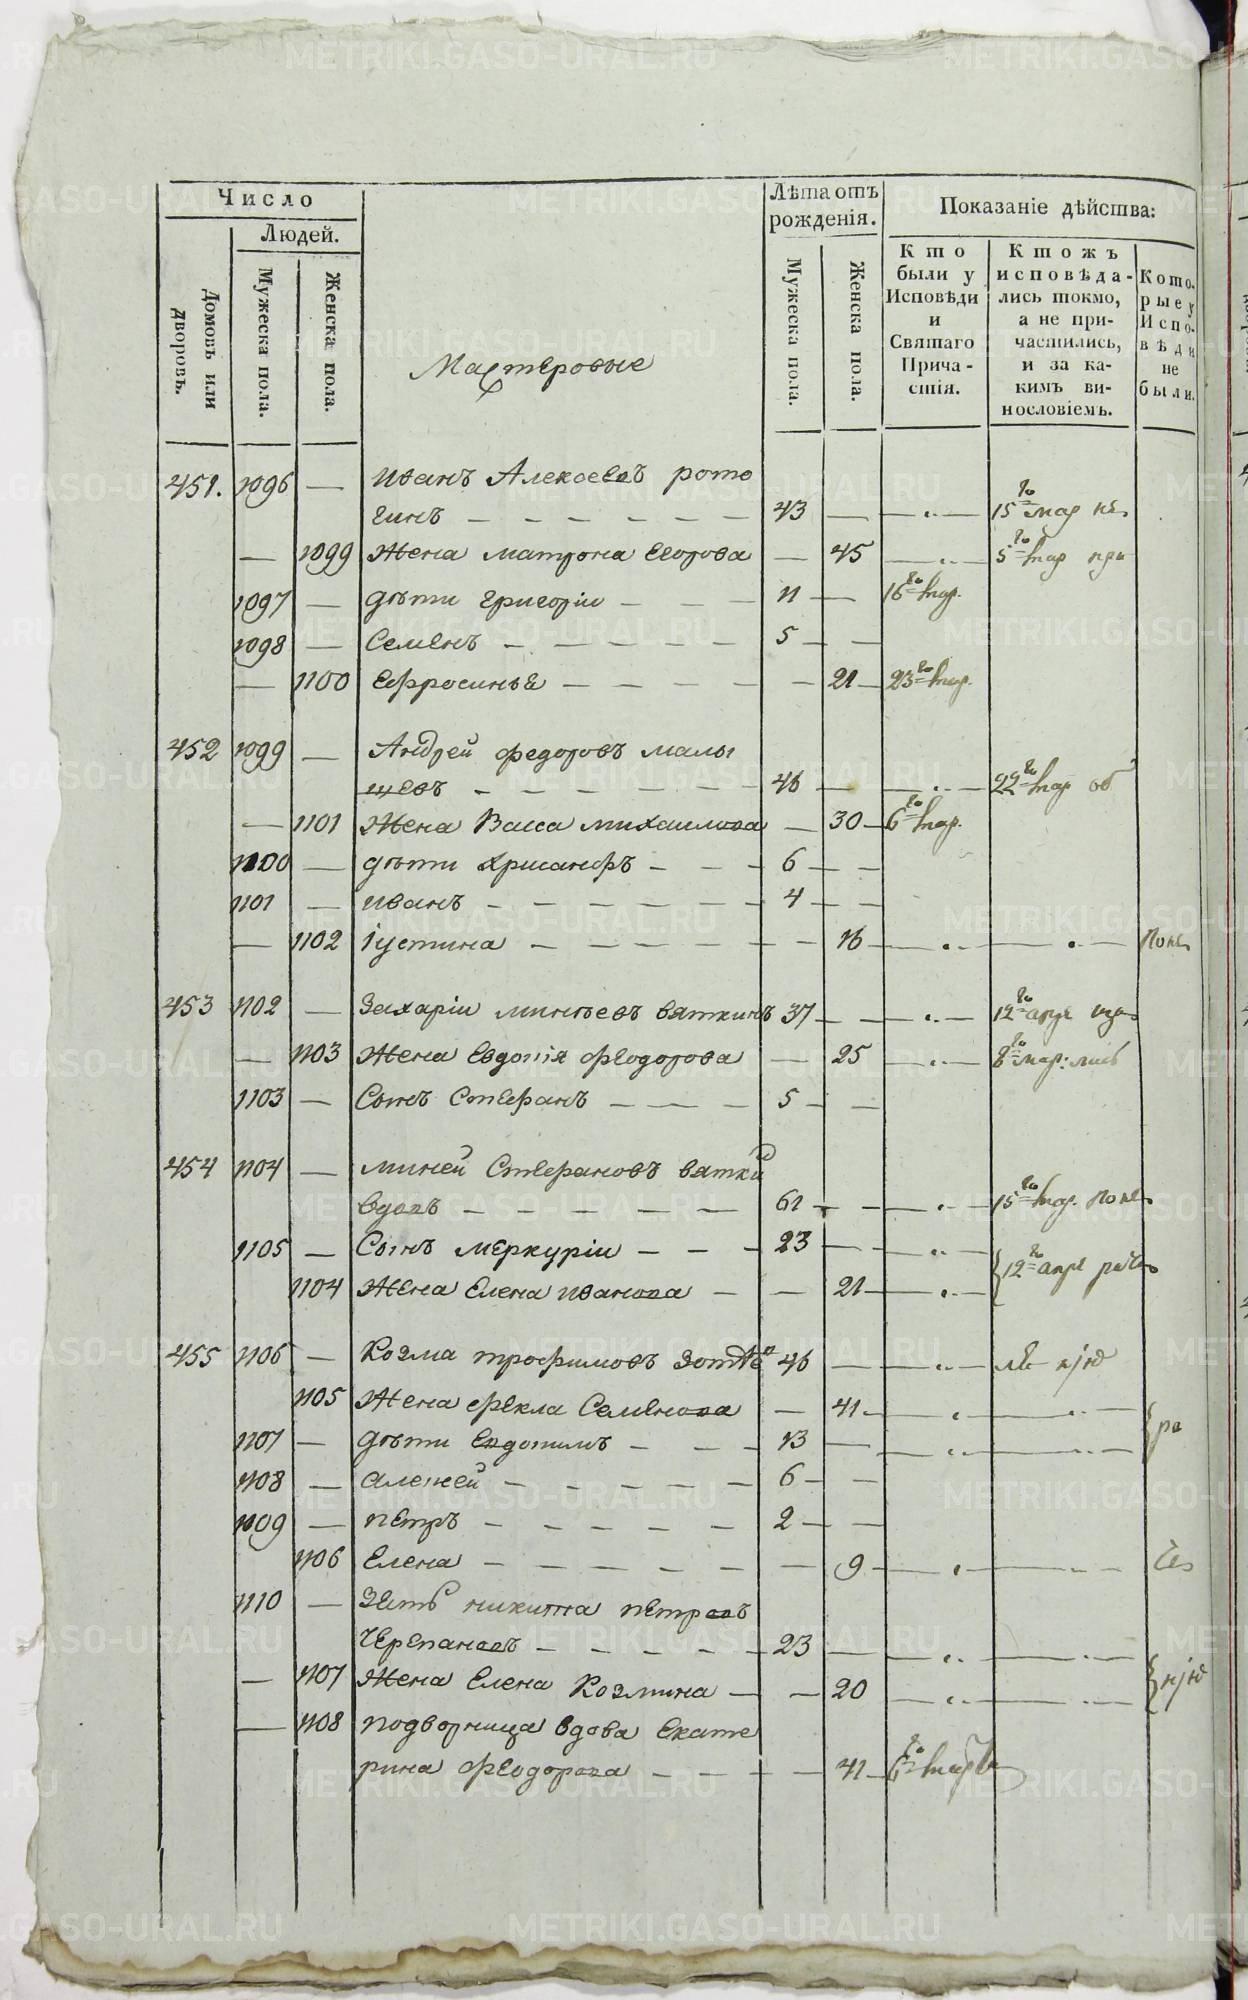 Число
Людей.
Домовъ или дворовъ.
Мужеска пола.
Женска пола.
Мастеровые
Лѣта отъ рожденія.
Мужеска пола.
Женска пола.
Показаніе дѣйства:
Кто были у Исповѣди и Святаго Прича-стія.
Ктожъ исповѣда-лись токмо, а не при-частились, и за ка-кимъ ви-нословіемъ.
Кото-рые у Испо-вѣди не были.
451. 1096 — Иванъ Алексеевъ рото
гинъ — 43 — — 15го мар
— 1099 Жена матрона Егорова — 45 — 5го мар
1097 — дѣти григоріи — 11 — 16го мар.
1098 — Семенъ — 5 — —
— 1100 Ефросинья — — 21 — 23го мар.
452 1099 — Андрей федоровъ малы
щевъ — 46 — — 22го мар об
— 1101 Жена Васса михаилова — 30 — 6го мар.
1100 — дѣти Хрисанфъ — 6 — —
1101 — иванъ — 4 — —
— 1102 Іустина — — 16 — —
453 1102 — Захаріи минѣевъ вяткинъ 37 — — — 12го апре
— 1103 Жена Евдокія феодорова — 25 — 8го мар:
1103 — Сынъ Стефанъ — 5 — —
454 1104 — миней Стефановъ вятки
вдовъ — 61 — — — 15го мар.
1105 — Сынъ меркуріи — 23 — —
1104 Жена Елена иванова — — 21 — 12го апре
455 1106 — Козма трофимовъ Зотѣв 46 — —
1105 Жена фекла Семенова — 41 — —
1107 — дѣти Евдокимъ — 13 — — —
1108 — алексей — 6 — —
1109 — петръ — 2 — —
1106 Елена — — 9 — —
1110 — Зять никита петровъ
черепановъ — 23 — — —
— 1107 Жена Елена Козмина — — 20 — —
— 1108 подворница вдова Екате
рина феодорова — — 41 — 6го мар
METRIKI.GASO-URAL.RU